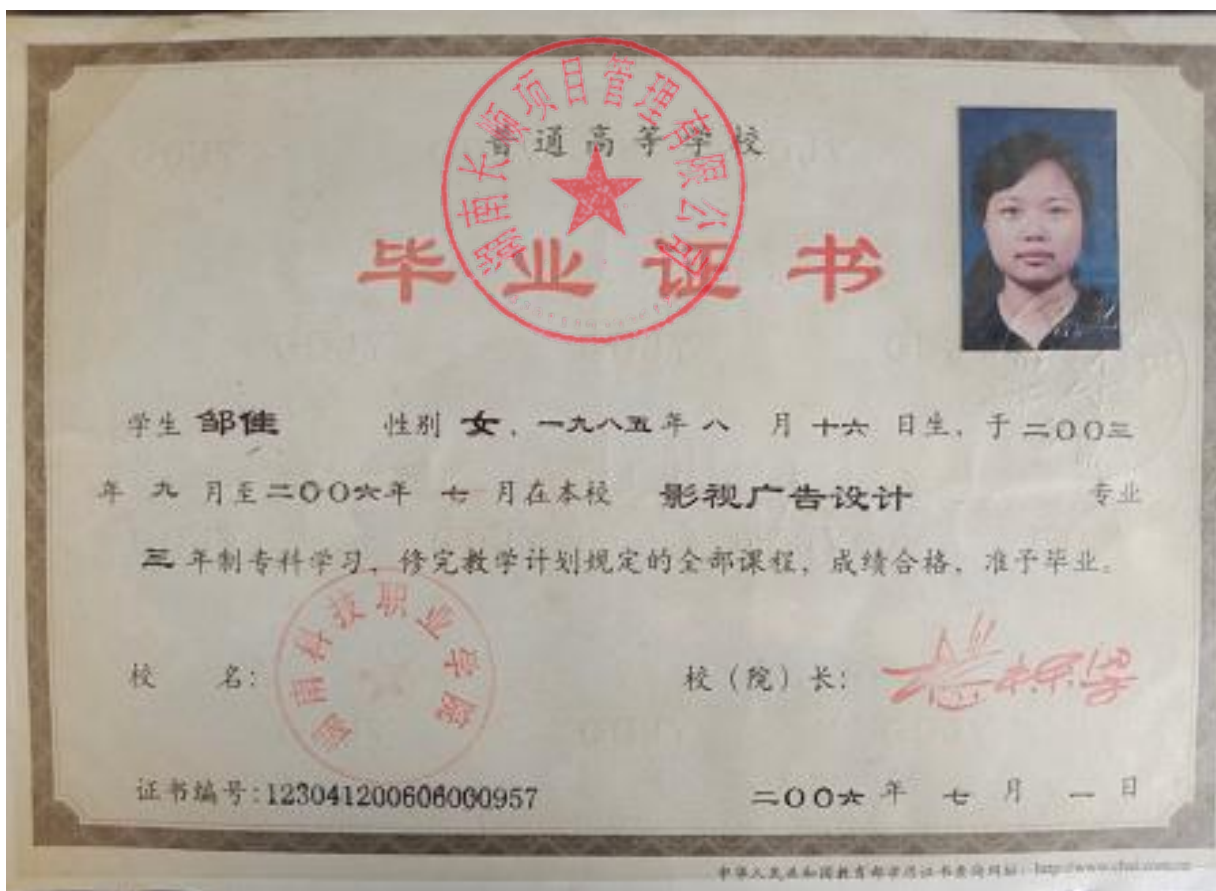 湖南长顺项目管理有限公司
普通高等学校
毕业证书
学生 邹佳 性别 女，一九八五年 八 月 十六 日生，于二〇〇三
年 九 月至二〇〇六年 七 月在本校 影视广告设计 专业
三 年制专科学习，修完教学计划规定的全部课程，成绩合格，准予毕业。
湖南科技职业学院
校 名： 校（院）长：
证书编号：123041200606000957 二〇〇六 年 七 月 一 日
中华人民共和国教育部学历证书查询网址：http://www.chsi.com.cn